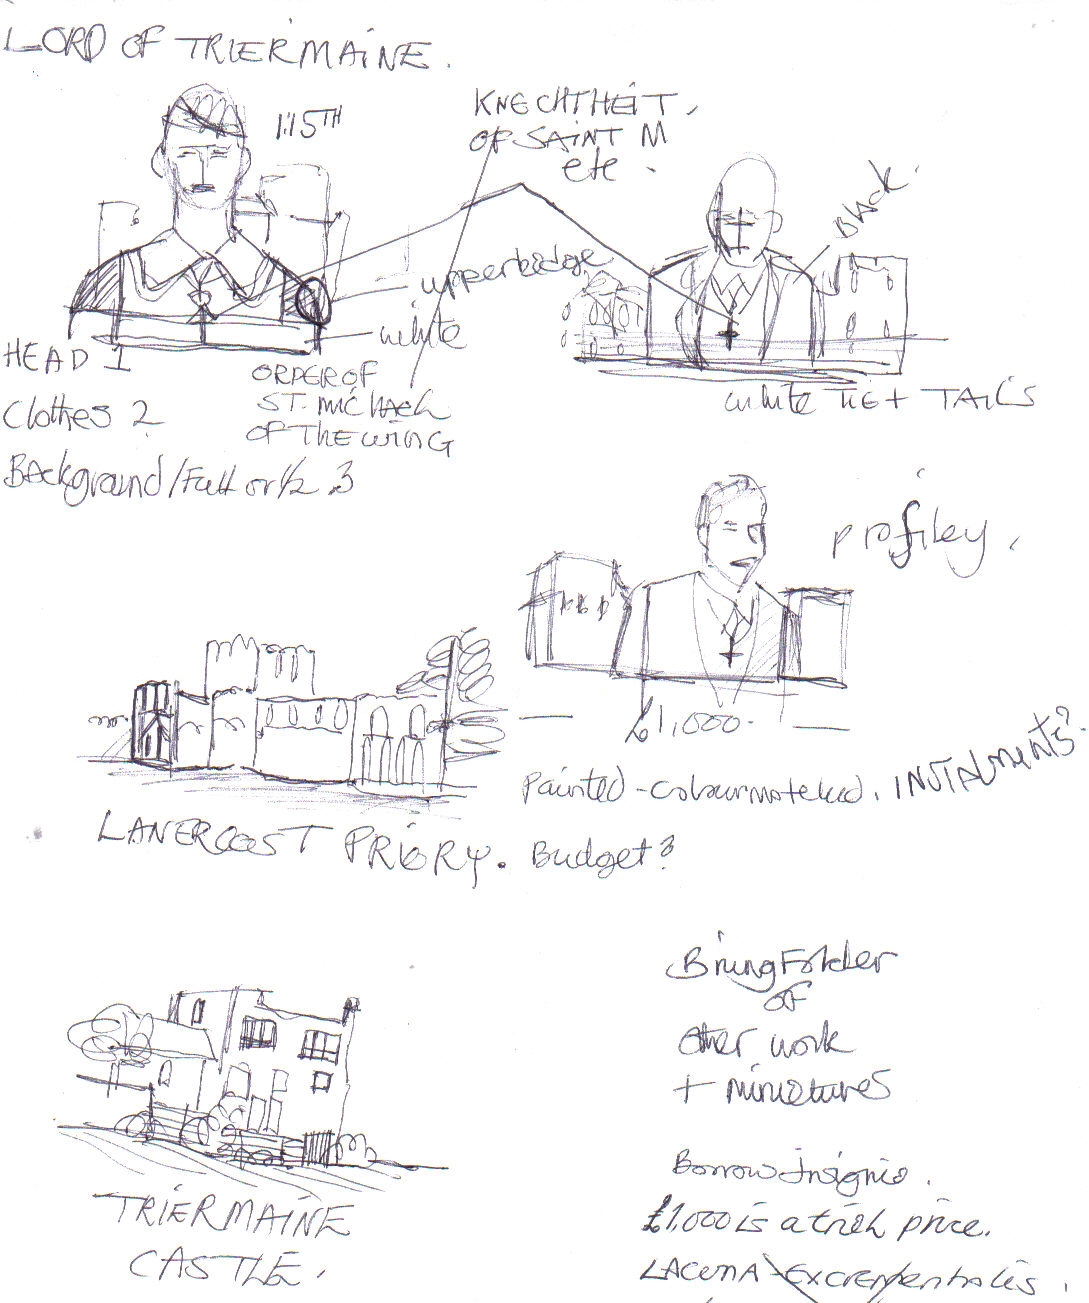 LORD OF TRIERMAINE.
1:15TH
KNECHTHEIT,
OF SAINT M
etc.
Black.
upperbadge
white
HEAD 1
Clothes 2
Background/Full or 1/2 3
ORDER OF
ST. MICHAEL
OF THE WING
white TIE + TAILS
profiley.
£1,000.
Painted - colour matched. INSTALMENTS?
LANERCOST PRIORY. Budget?
Bring Folder
of
other work
+ miniatures
TRIERMAINE
CASTLE.
Borrow insignia.
£1,000 is a trick price.
LACUNA